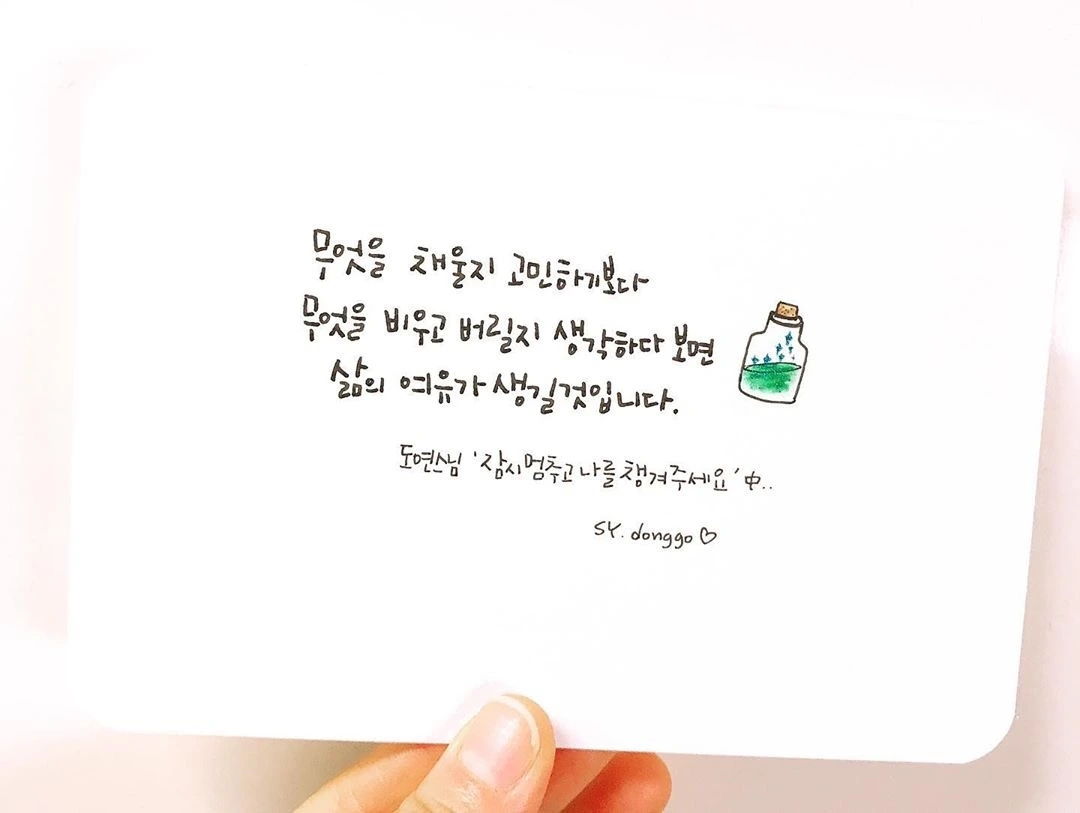 무엇을 채울지 고민하기보다
무엇을 비우고 버릴지 생각하다 보면
삶의 여유가 생길것입니다.
도연스님 '잠시멈추고 나를 챙겨주세요' 中..
SY. donggo♡